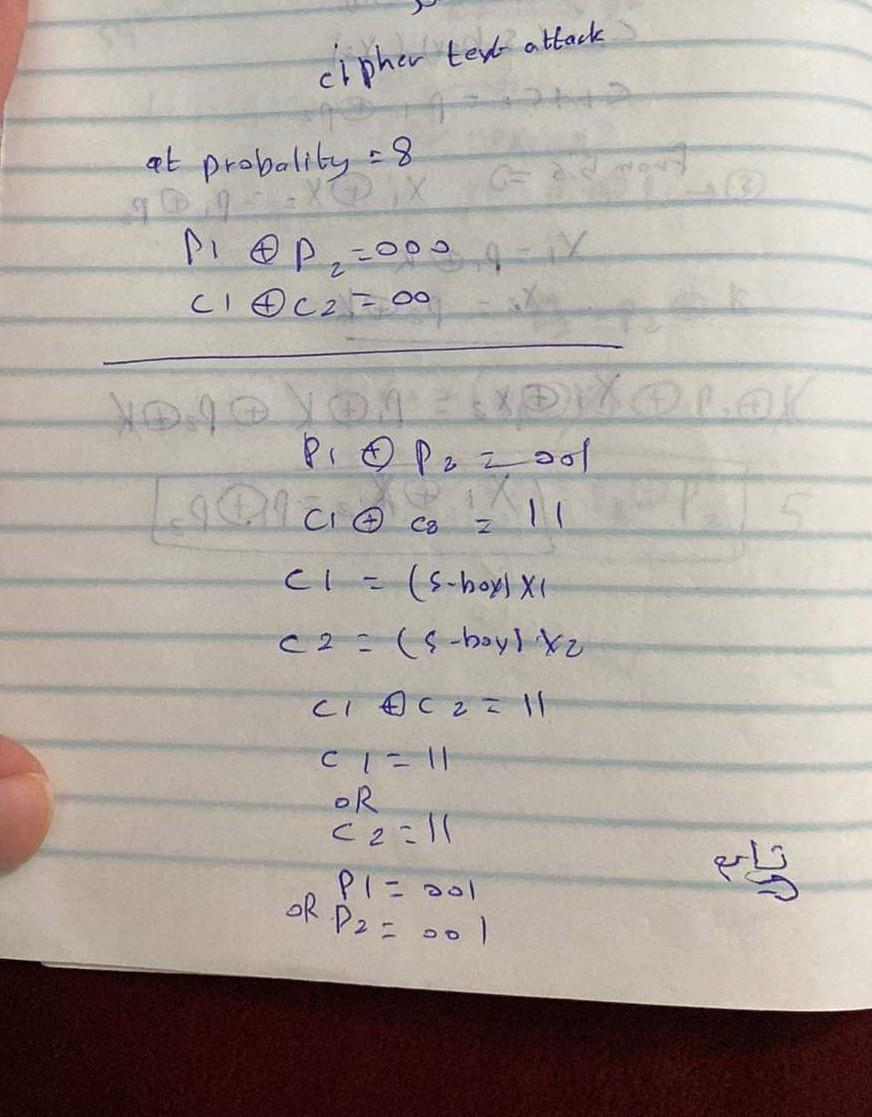 cipher text attack
at probality = 8
P1 ⊕ P2 = 000
C1 ⊕ C2 = 00
P1 ⊕ P2 = 001
C1 ⊕ C2 = 11
C1 = (S-box) X1
C2 = (S-box) X2
C1 ⊕ C2 = 11
C1 = 11
OR
C2 = 11
P1 = 001
OR P2 = 001
تابع